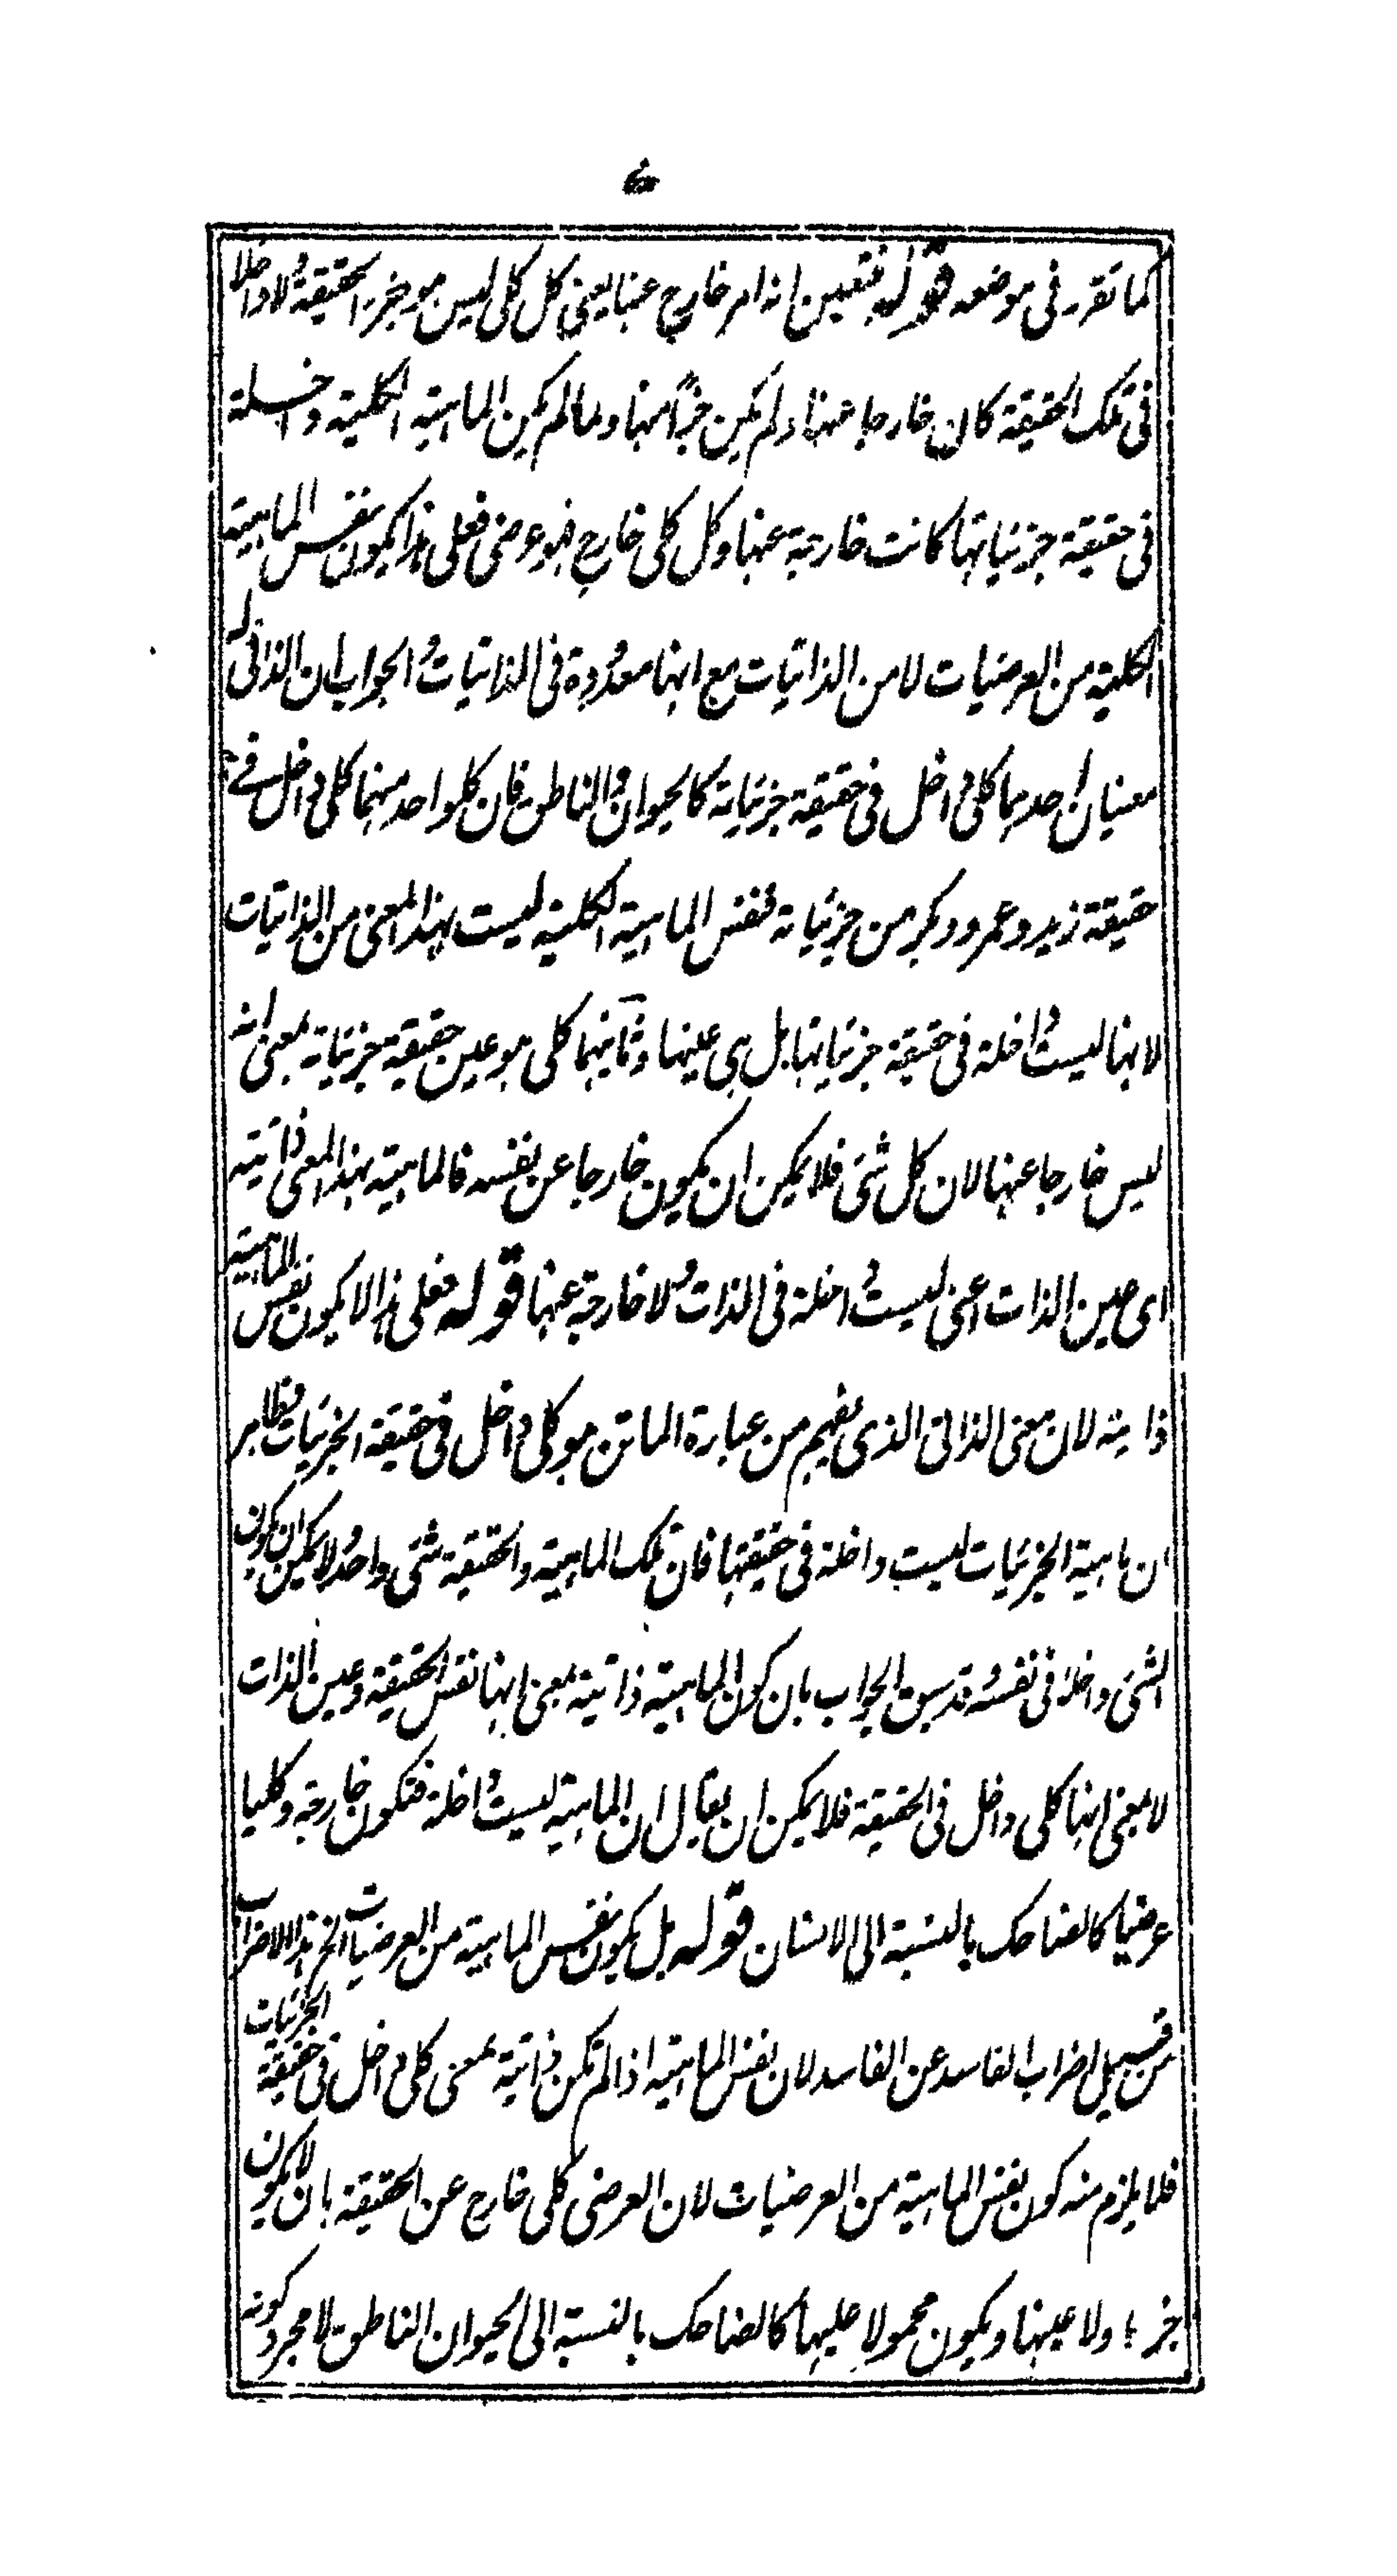 كما تقرر فى موضعه قوله فتعين انه امر خارج عنها يعنى كل كلى ليس هو جزء الحقيقة ولا داخلا
فى تلك الحقيقة كان خارجا عنها ولم يكن جزأ منها ولما لم يكن الماهية الكلية داخلة
فى حقيقة جزئياتها كانت خارجة عنها وكل كلى خارج فهو عرضى فعلى هذا يكون نفس الماهية
الكلية من العرضيات لا من الذاتيات مع انها معدودة فى الذاتيات والجواب ان الذاتى له
معنيان احدهما كلى داخل فى حقيقة جزئياته كالحيوان والناطق فان كلو احد منهما كلى داخل فے
حقيقة زيد وعمرو وبكر من جزئياته فنفس الماهية الكلية ليست بهذا المعنى من الذاتيات
لانها ليست داخلة فى حقيقة جزئياتها بل هى عينها وثانيهما كلى هو عين حقيقة جزئياته بمعنى انه
ليس خارجا عنها لان كل شئ فلا يمكن ان يكون خارجا عن نفسه فالماهية بهذا المعنى ذاتية
اى عين الذات اعنى ليست داخلة فى الذات ولا خارجة عنها قوله فعلى هذا لا يكون نفس الماهية
ذاتية لان معنى الذاتى الذى يفهم من عبارة الماتن هو كلى داخل فى حقيقة الجزئيات وظاهر
ان ماهية الجزئيات ليست داخلة فى حقيقتها فان تلك الماهية والحقيقة شئ واحد ولا يمكن ان يكون
الشئ داخلا فى نفسه وقد سبق الجواب بان كون الماهية ذاتية بمعنى انها نفس الحقيقة وعين الذات
لا بمعنى انها كلى داخل فى الحقيقة فلا يمكن ان يقال ان الماهية ليست داخلة فتكون خارجة وكليا
عرضيا كالضاحك بالنسبة الى الانسان قوله بل يكون نفس الماهية من العرضيات الخ هذا الاضراب
من قبيل اضراب الفاسد عن الفاسد لان نفس الماهية اذا لم تكن ذاتية بمعنى كلى داخل فى حقيقة الجزئيات
فلا يلزم منه كون نفس الماهية من العرضيات لان العرضى كلى خارج عن الحقيقة بان لا يكون
جزءا ولا عينها ويكون محمولا عليها كالضاحك بالنسبة الى الحيوان الناطق لا مجرد كونه